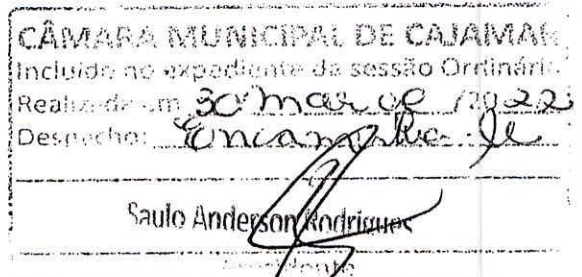 CÂMARA MUNICIPAL DE CAJAMAR
Incluído no expediente da sessão Ordinária
Realizada em 30/março/2022
Despacho: Encaminhe-se
Saulo Anderson Rodrigues
Presidente